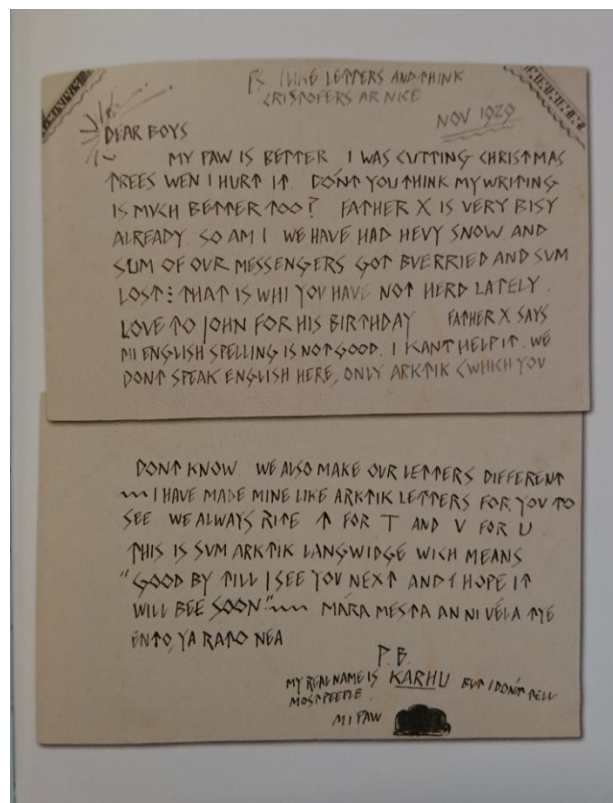 PS I LIKE LETTERS AND THINK
CRISTOFERS AR NICE
NOV 1929
DEAR BOYS
MY PAW IS BETTER I WAS CVTTING CHRISTMAS
TREES WEN I HVRT IT. DONT YOV THINK MY WRITING
IS MVCH BETTER TOO? FATHER X IS VERY BISY
ALREADY. SO AM I WE HAVE HAD HEVY SNOW AND
SVM OF OVR MESSENGERS GOT BVERRIED AND SVM
LOST: THAT IS WHI YOV HAVE NOT HERD LATELY.
LOVE TO JOHN FOR HIS BIRTHDAY FATHER X SAYS
MI ENGLISH SPELLING IS NOT GOOD. I KANT HELP IT. WE
DONT SPEAK ENGLISH HERE, ONLY ARKTIK (WHICH YOV
DONT KNOW. WE ALSO MAKE OVR LETTERS DIFFERENT
~~~ I HAVE MADE MINE LIKE ARKTIK LETTERS FOR YOV TO
SEE WE ALWAYS RITE ↑ FOR T AND V FOR U
THIS IS SVM ARKTIK LANGWIDGE WICH MEANS
"GOOD BY TILL I SEE YOV NEXT AND I HOPE IT
WILL BEE SOON" ~~~ MÁRA MESTA AN NI VÉLA TYE
ENTO, YA RATO NEA
P.B.
MY REAL NAME IS KARHU BVT I DON'T TELL
MOST PEEPLE.
MI PAW